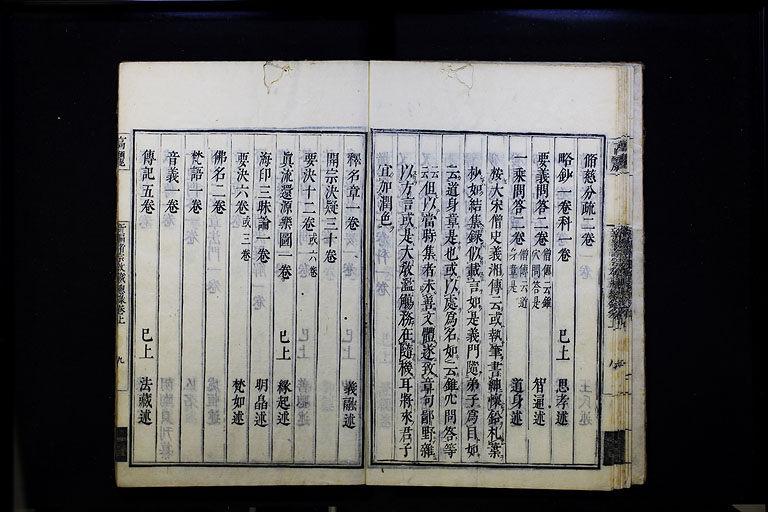 脩慈分疏二卷
略鈔一卷科一卷 已上 思孝述
要義問答二卷 僧傳云錐穴問答是 智通述
一乘問答二卷 僧傳云道身章是 道身述
按大宋僧史義湘傳云或執筆書紳懷鉛札葉
抄如結集錄似載言如是義門隨弟子爲目如
云道身章是也或以處爲名如云錐穴問答等
云但以當時集者未善文體遂致章句鄙野雜
以方言或是大教濫觴務在隨機耳將來君子
宜加潤色
釋名章一卷 義融述
開宗決疑三十卷
要決十二卷 或六卷
眞流還源樂圖一卷 已上 緣起述
海印三昧論一卷 明皛述
要決六卷 或三卷 梵如述
佛名二卷
梵語一卷
音義一卷
傳記五卷 已上 法藏述
九